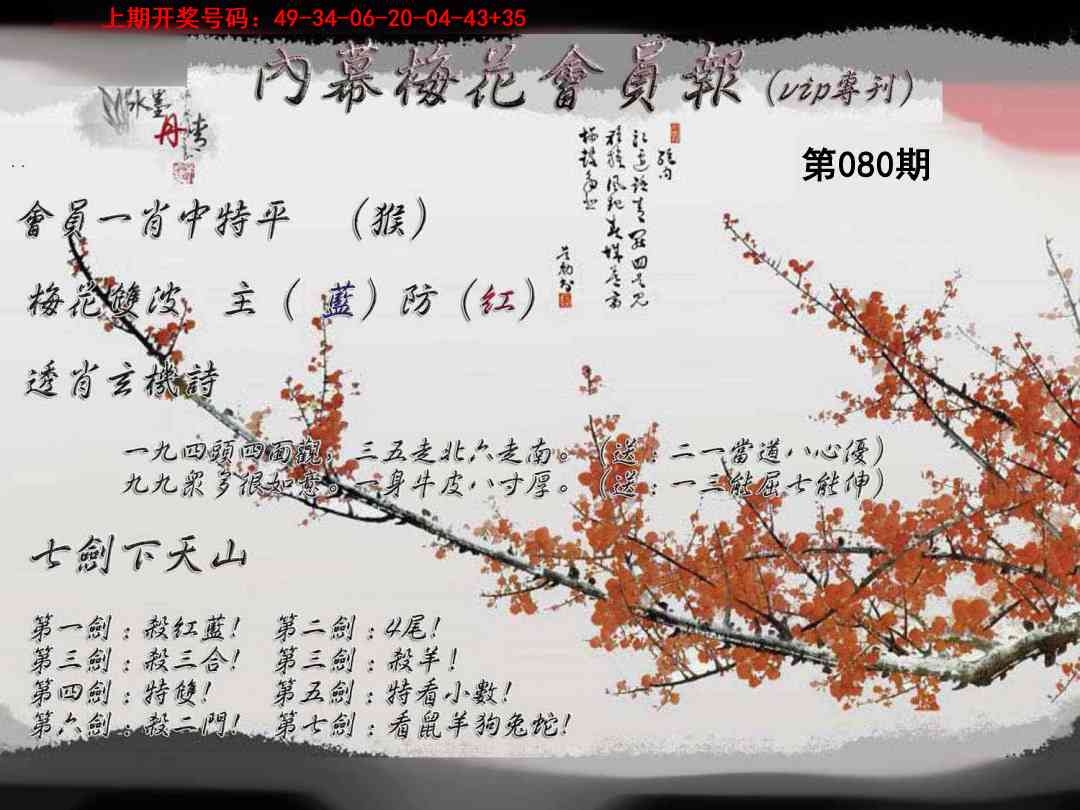 上期开奖号码：49-34-06-20-04-43+35
內幕梅花會員報（vip專刊）
水墨
丹青
第080期
會員一肖中特平 （猴）
梅花雙波 主（藍）防（红）
透肖玄機詩
一九四頭四面觀，三五走北六走南。（送：二一當道八心優）
九九眾多很如意。一身牛皮八寸厚。（送：一三能屈七能伸）
七劍下天山
第一劍：殺紅藍！ 第二劍：4尾！
第三劍：殺三合！ 第三劍：殺羊！
第四劍：特雙！ 第五劍：特看小數！
第六劍：殺二門！ 第七劍：看鼠羊狗兔蛇！